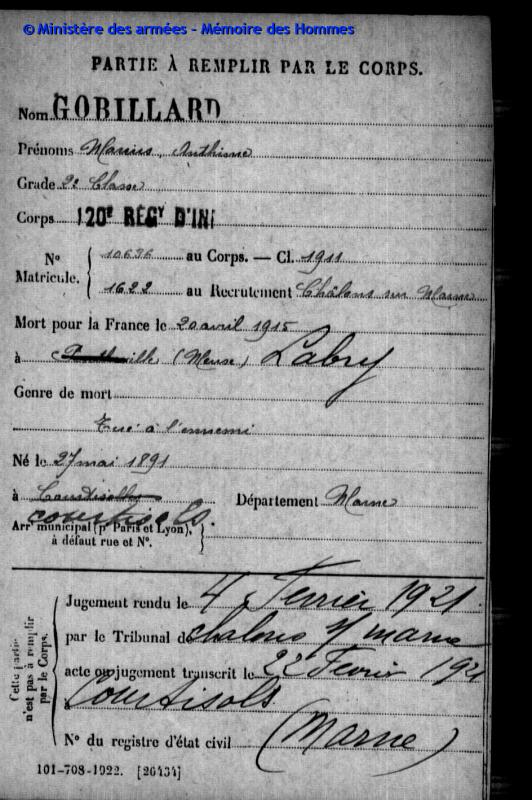 © Ministère des armées - Mémoire des Hommes
PARTIE À REMPLIR PAR LE CORPS.
Nom GOBILLARD
Prénoms Marius, Anthime
Grade 2e Classe
Corps 120e RÉGT D'INF
N° Matricule. { 10636 au Corps. — Cl. 1911
1622 au Recrutement Châlons sur Marne
Mort pour la France le 20 avril 1915
à (Meuse) Labry
Genre de mort
Tué à l'ennemi
Né le 27 mai 1891
à Courtisolles Département Marne
Courtisols.
Arr¹ municipal (p. Paris et Lyon), à défaut rue et N°. }
Cette partie n'est pas à remplir par le Corps.
Jugement rendu le 4 Fevrier 1921.
par le Tribunal de chalons s/ marne
acte ou jugement transcrit le 22 Fevrier 1921
Courtisols
N° du registre d'état civil (Marne)
101-708-1922. [26434]